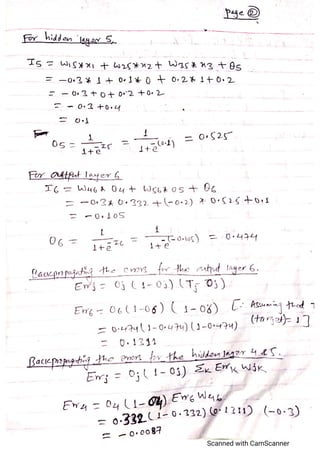 Page ②
For hidden layer 5.
I5 = W15*x1 + W25*x2 + W35*x3 + θ5
= -0.3 * 1 + 0.1 * 0 + 0.2 * 1 + 0.2
= -0.3 + 0 + 0.2 + 0.2
= -0.3 + 0.4
= 0.1
O5 = 1/(1+e^-I5) = 1/(1+e^-(0.1)) = 0.525
For output layer 6
I6 = W46 * O4 + W56 * O5 + θ6
= -0.3 * 0.332 + (-0.2) * 0.525 + 0.1
= -0.105
O6 = 1/(1+e^-I6) = 1/(1+e^-(-0.105)) = 0.474
Backpropagating the errors for the output layer 6.
Errj = Oj (1-Oj) (Tj-Oj)
Err6 = O6 (1-O6) (1-O6) [∵ Assuming that
(target) = 1]
= 0.474 (1-0.474) (1-0.474)
= 0.1311
Backpropagating the errors for the hidden layer 4 & 5.
Errj = Oj (1-Oj) Σk Errk Wjk
Err4 = O4 (1-O4) Err6 W46
= 0.332 (1-0.332) (0.1311) (-0.3)
= -0.0087
Scanned with CamScanner